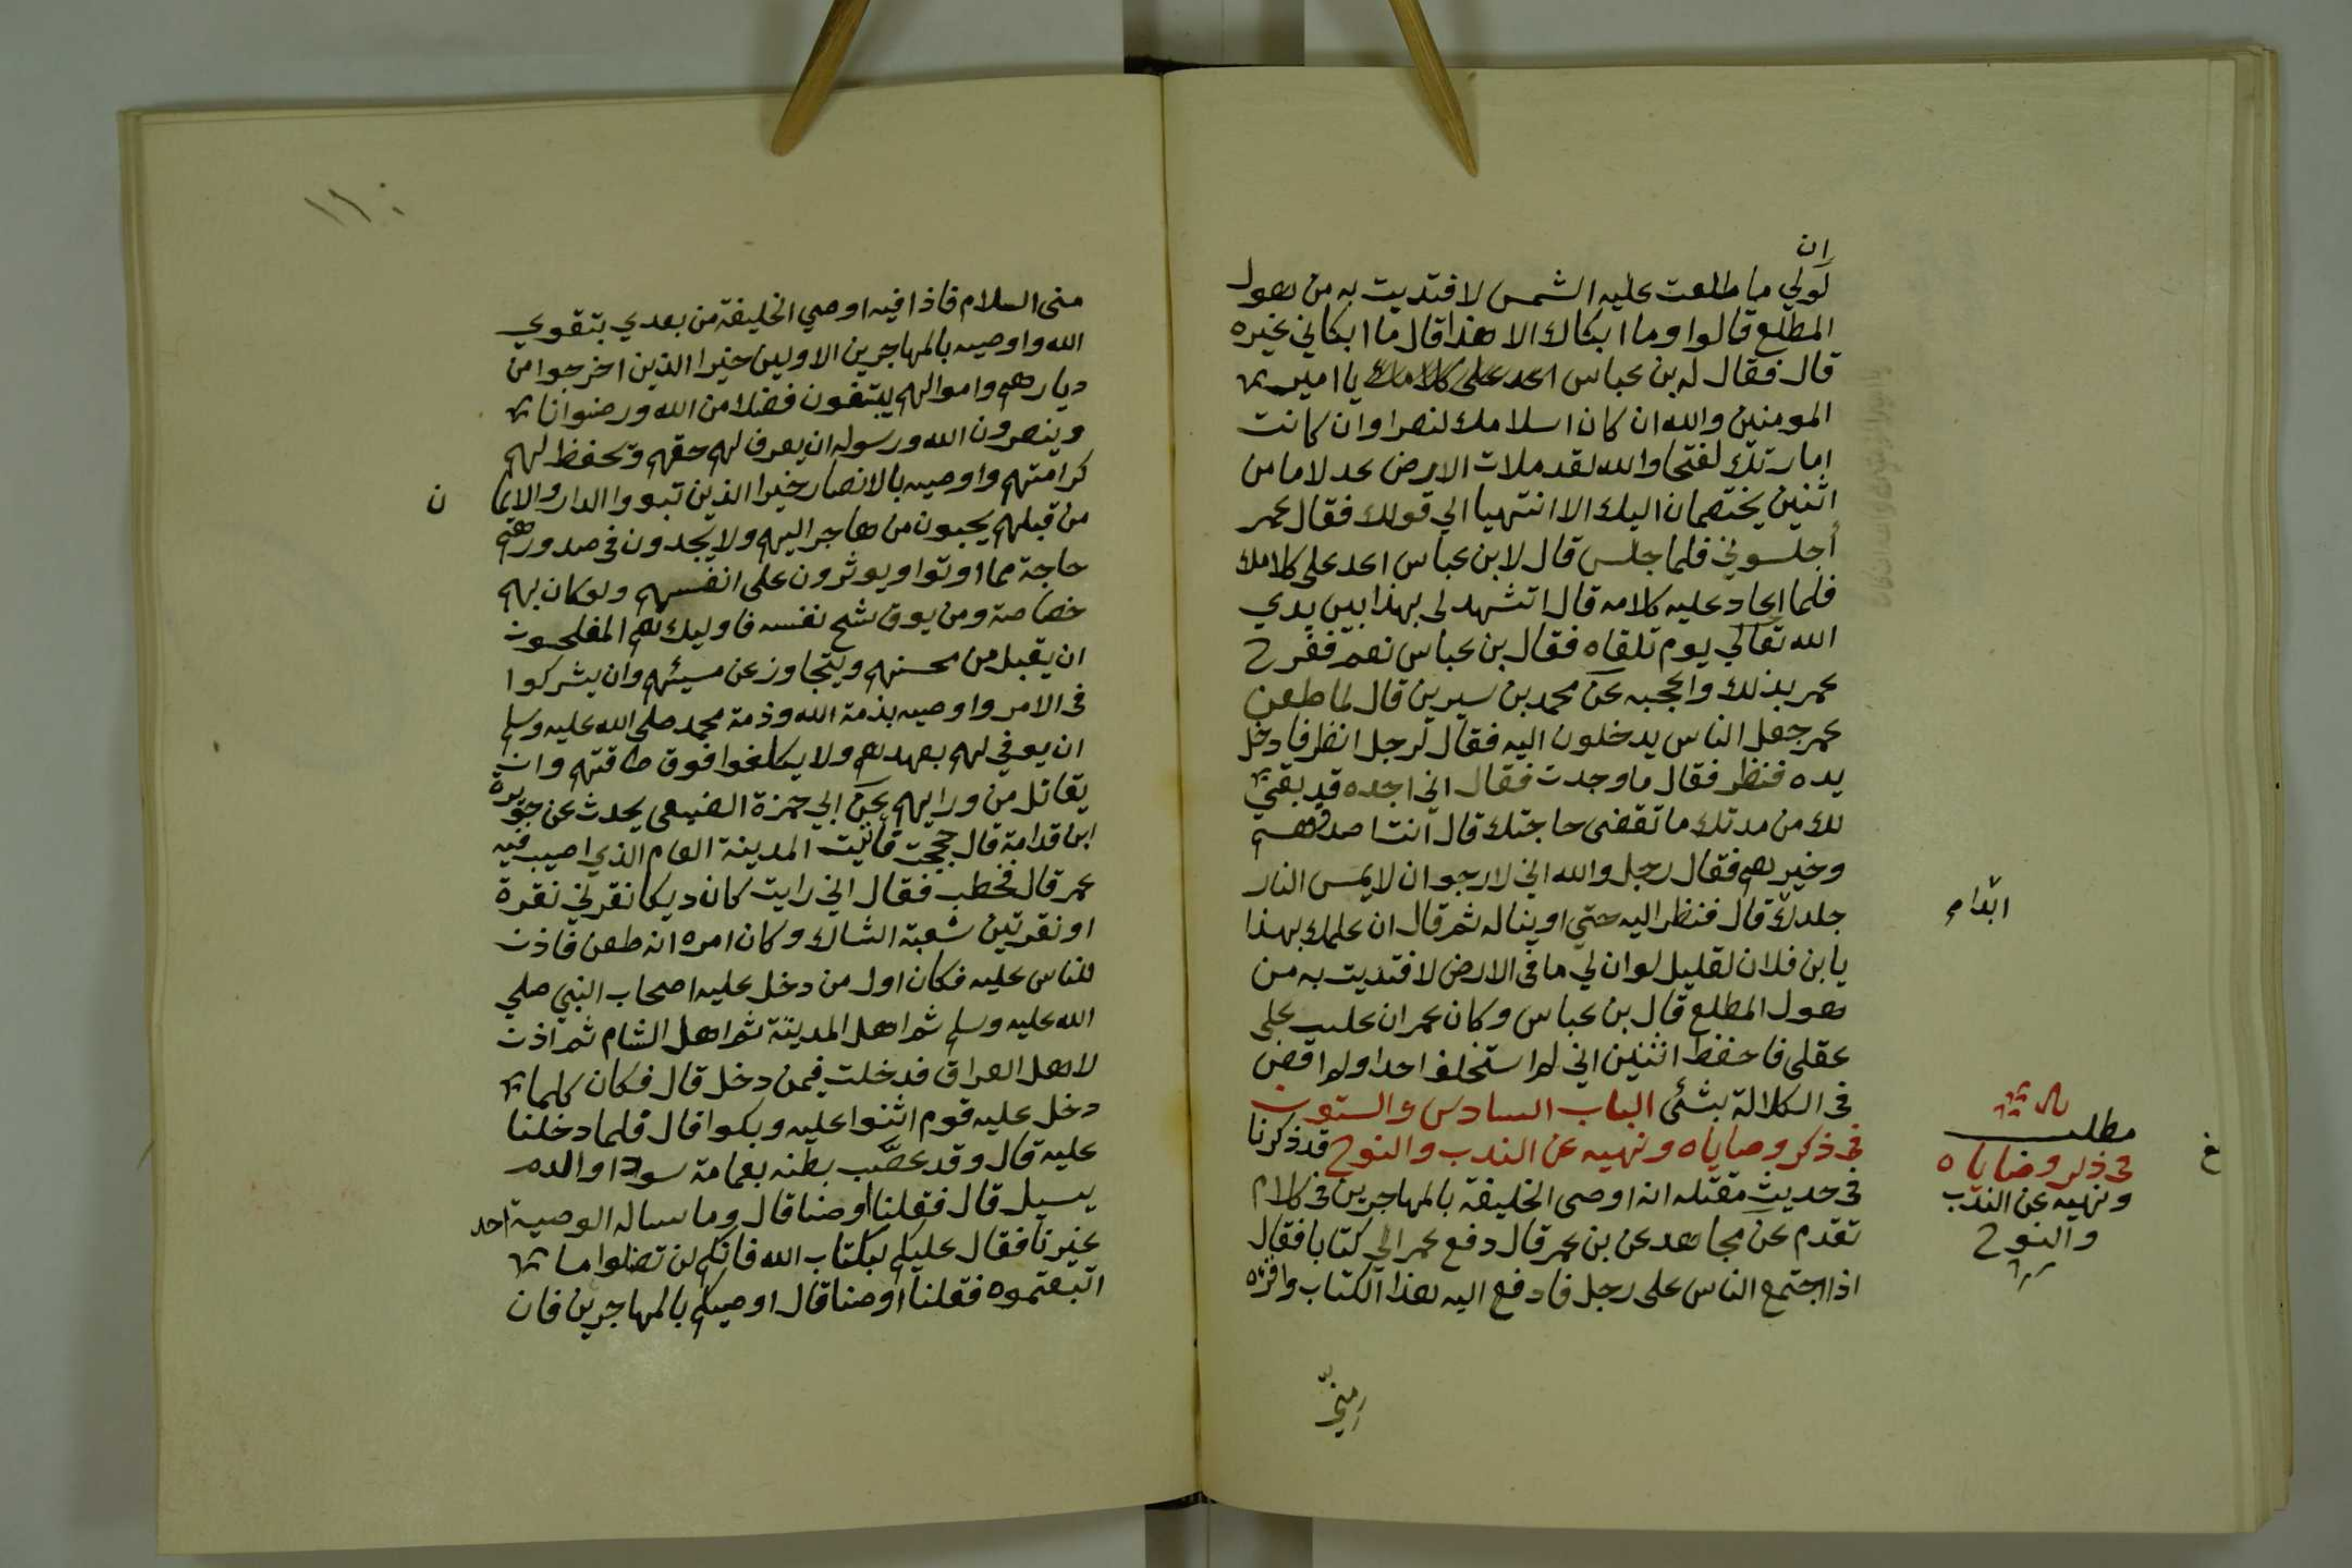 ان
لو لي ما طلعت عليه الشمس لافتديت به من هول
المطلع قالوا وما ابكاك الا هذا قال ما ابكاني غيره
قال فقال له بن عباس اعد على كلامك يا امير
المومنين والله ان كان اسلامك لنصرا وان كانت
امارتك لفتحا والله لقد ملات الارض عدلا ما من
اثنين يختصمان اليك الا انتهيا الي قولك فقال عمر
أجلسوني فلما جلس قال لابن عباس اعد على كلامك
فلما اعاد عليه كلامه قال اتشهد لى بهذا بين يدي
الله تعالي يوم تلقاه فقال بن عباس نعم ففرح
عمر بذلك واعجبه عن محمد بن سيرين قال لما طعن
عمر جعل الناس يدخلون اليه فقال لرجل انظر فادخل
يده فنظر فقال ما وجدت فقال اني اجده قد بقي
لك من مدتك ما تقضى حاجتك قال أنت اصدقهم
وخيرهم فقال رجل والله اني لارجوا ان لا يمس النار
جلدك قال فنظر اليه حتي اوينا له ثم قال ان علمك بهذا
ابدا م
يا بن فلان لقليل لو ان لي ما في الارض لافتديت به من
هول المطلع قال بن عباس وكان عمر ان غلب على
عقلى فاحفظ اثنين اني لم استخلف احدا ولم اقض
فى الكلالة بشئ الباب السادس والستون
فى ذكر وصاياه ونهيه عن الندب والنوح قد ذكرنا
فى حديث مقتله انه اوصى الخليفة بالمهاجرين فى كلام
تقدم عن مجاهد عن بن عمر قال دفع عمر الي كتابا فقال
اذا اجتمع الناس على رجل فادفع اليه هذا الكتاب واقره
مطلب
فى ذكر وصاياه
ونهيه عن الندب
والنوح
غ
مني
١١٠
منى السلام فاذا فيه اوصي الخليفة من بعدي بتقوي
الله واوصيه بالمهاجرين الاولين خيرا الذين اخرجوا من
ديارهم واموالهم يبتغون فضلا من الله ورضوانا
وينصرون الله ورسوله ان يعرف لهم حقهم وتحفظ لهم
كرامتهم واوصيه بالانصار خيرا الذين تبووا الدار والايما ن
من قبلهم يحبون من هاجر اليهم ولا يجدون فى صدورهم
حاجة مما اوتوا ويوثرون على انفسهم ولو كان بهم
خصاصة ومن يوق شح نفسه فاوليك هم المفلحون
ان يقبل من محسنهم ويتجاوز عن مسيئهم وان يشركوا
فى الامر واوصيه بذمة الله وذمة محمد صلى الله عليه وسلم
ان يوفي لهم بعهدهم ولا يكلفوا فوق طاقتهم وان
يقاتل من ورايهم عن ابي حمزة الضبعى يحدث عن جويرة
ابن قدامة قال حججت فاتيت المدينة العام الذي اصيب فيه
عمر قال فخطب فقال اني رايت كان ديكا نقرني نقرة
او نقرتين شعبة الشاك وكان امره انه طعن فاذن
للناس عليه فكان اول من دخل عليه اصحاب النبي صلي
الله عليه وسلم ثم اهل المدينة ثم اهل الشام ثم اذن
لاهل العراق فدخلت فيمن دخل قال فكان كلما
دخل عليه قوم اثنوا عليه وبكوا قال فلما دخلنا
عليه قال وقد عصّب بطنه بعمامة سودا والدم
يسيل قال فقلنا اوصنا قال وما ساله الوصية احد
غيرنا فقال عليكم بكتاب الله فانكم لن تضلوا ما
اتبعتموه فقلنا اوصنا قال اوصيكم بالمهاجرين فان